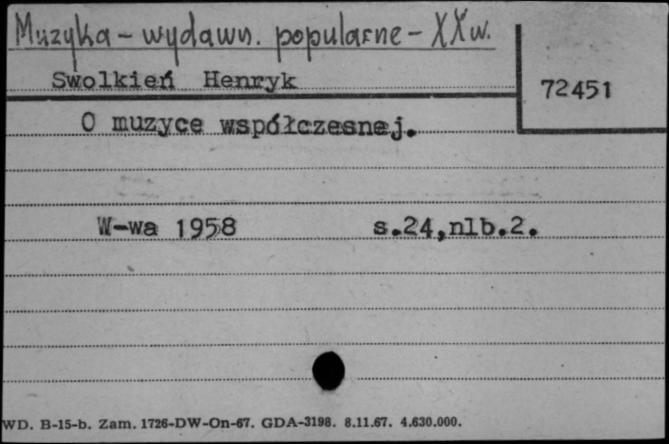 Muzyka - wydawn. popularne - XX w.
Swolkień Henryk
72451
O muzyce współczesnej.
W-wa 1958 s.24,nlb.2.
WD. B-15-b. Zam. 1726-DW-On-67. GDA-3198. 8.11.67. 4.630.000.